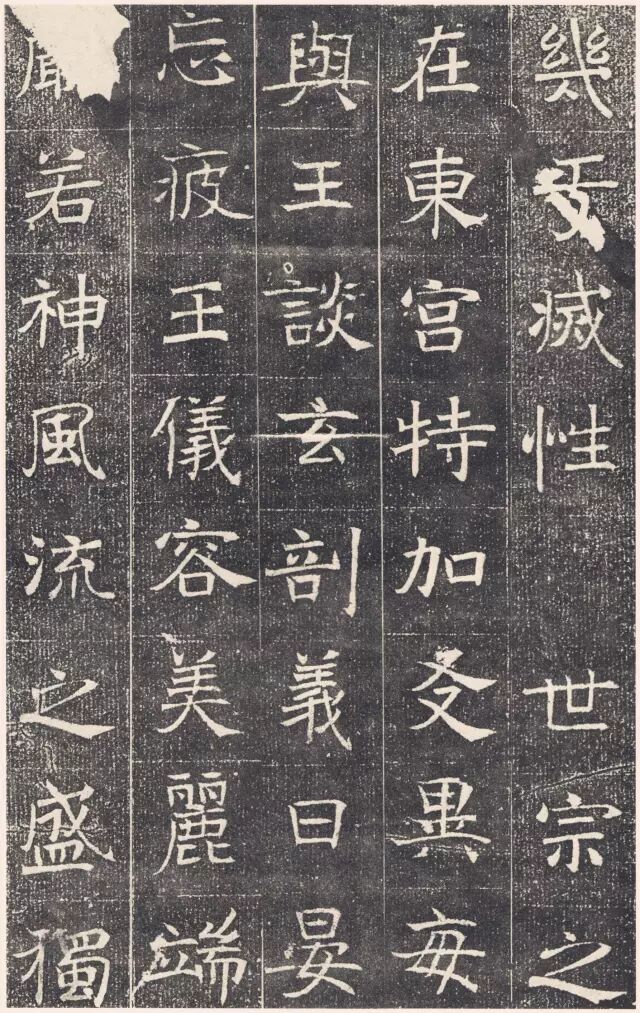 幾于滅性　世宗之
在東宮特加友異每
與王談玄剖義日晏
忘疲王儀容美麗端
若神風流之盛獨